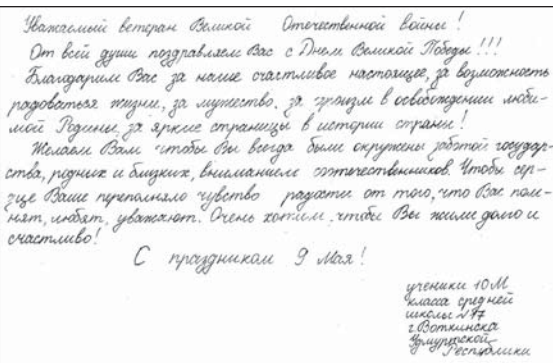 Уважаемый ветеран Великой Отечественной войны!
От всей души поздравляем Вас с Днем Великой Победы!!!
Благодарим Вас за наше счастливое настоящее, за возможность
радоваться жизни, за мужество, за героизм в освобождении люби-
мой Родины, за яркие страницы в истории страны!
Желаем Вам чтобы Вы всегда были окружены заботой государ-
ства, родных и близких, вниманием соотечественников. Чтобы сер-
дце Ваше переполняло чувство радости от того, что Вас пом-
нят, любят, уважают. Очень хотим, чтобы Вы жили долго и
счастливо!
С праздником 9 Мая!
ученики 10М
класса средней
школы №77
г. Воткинска
Удмуртской
Республики